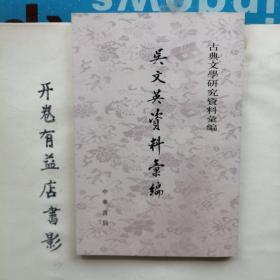 古典文學研究資料彙編
吳文英資料彙編
中華書局
开卷有益店書影